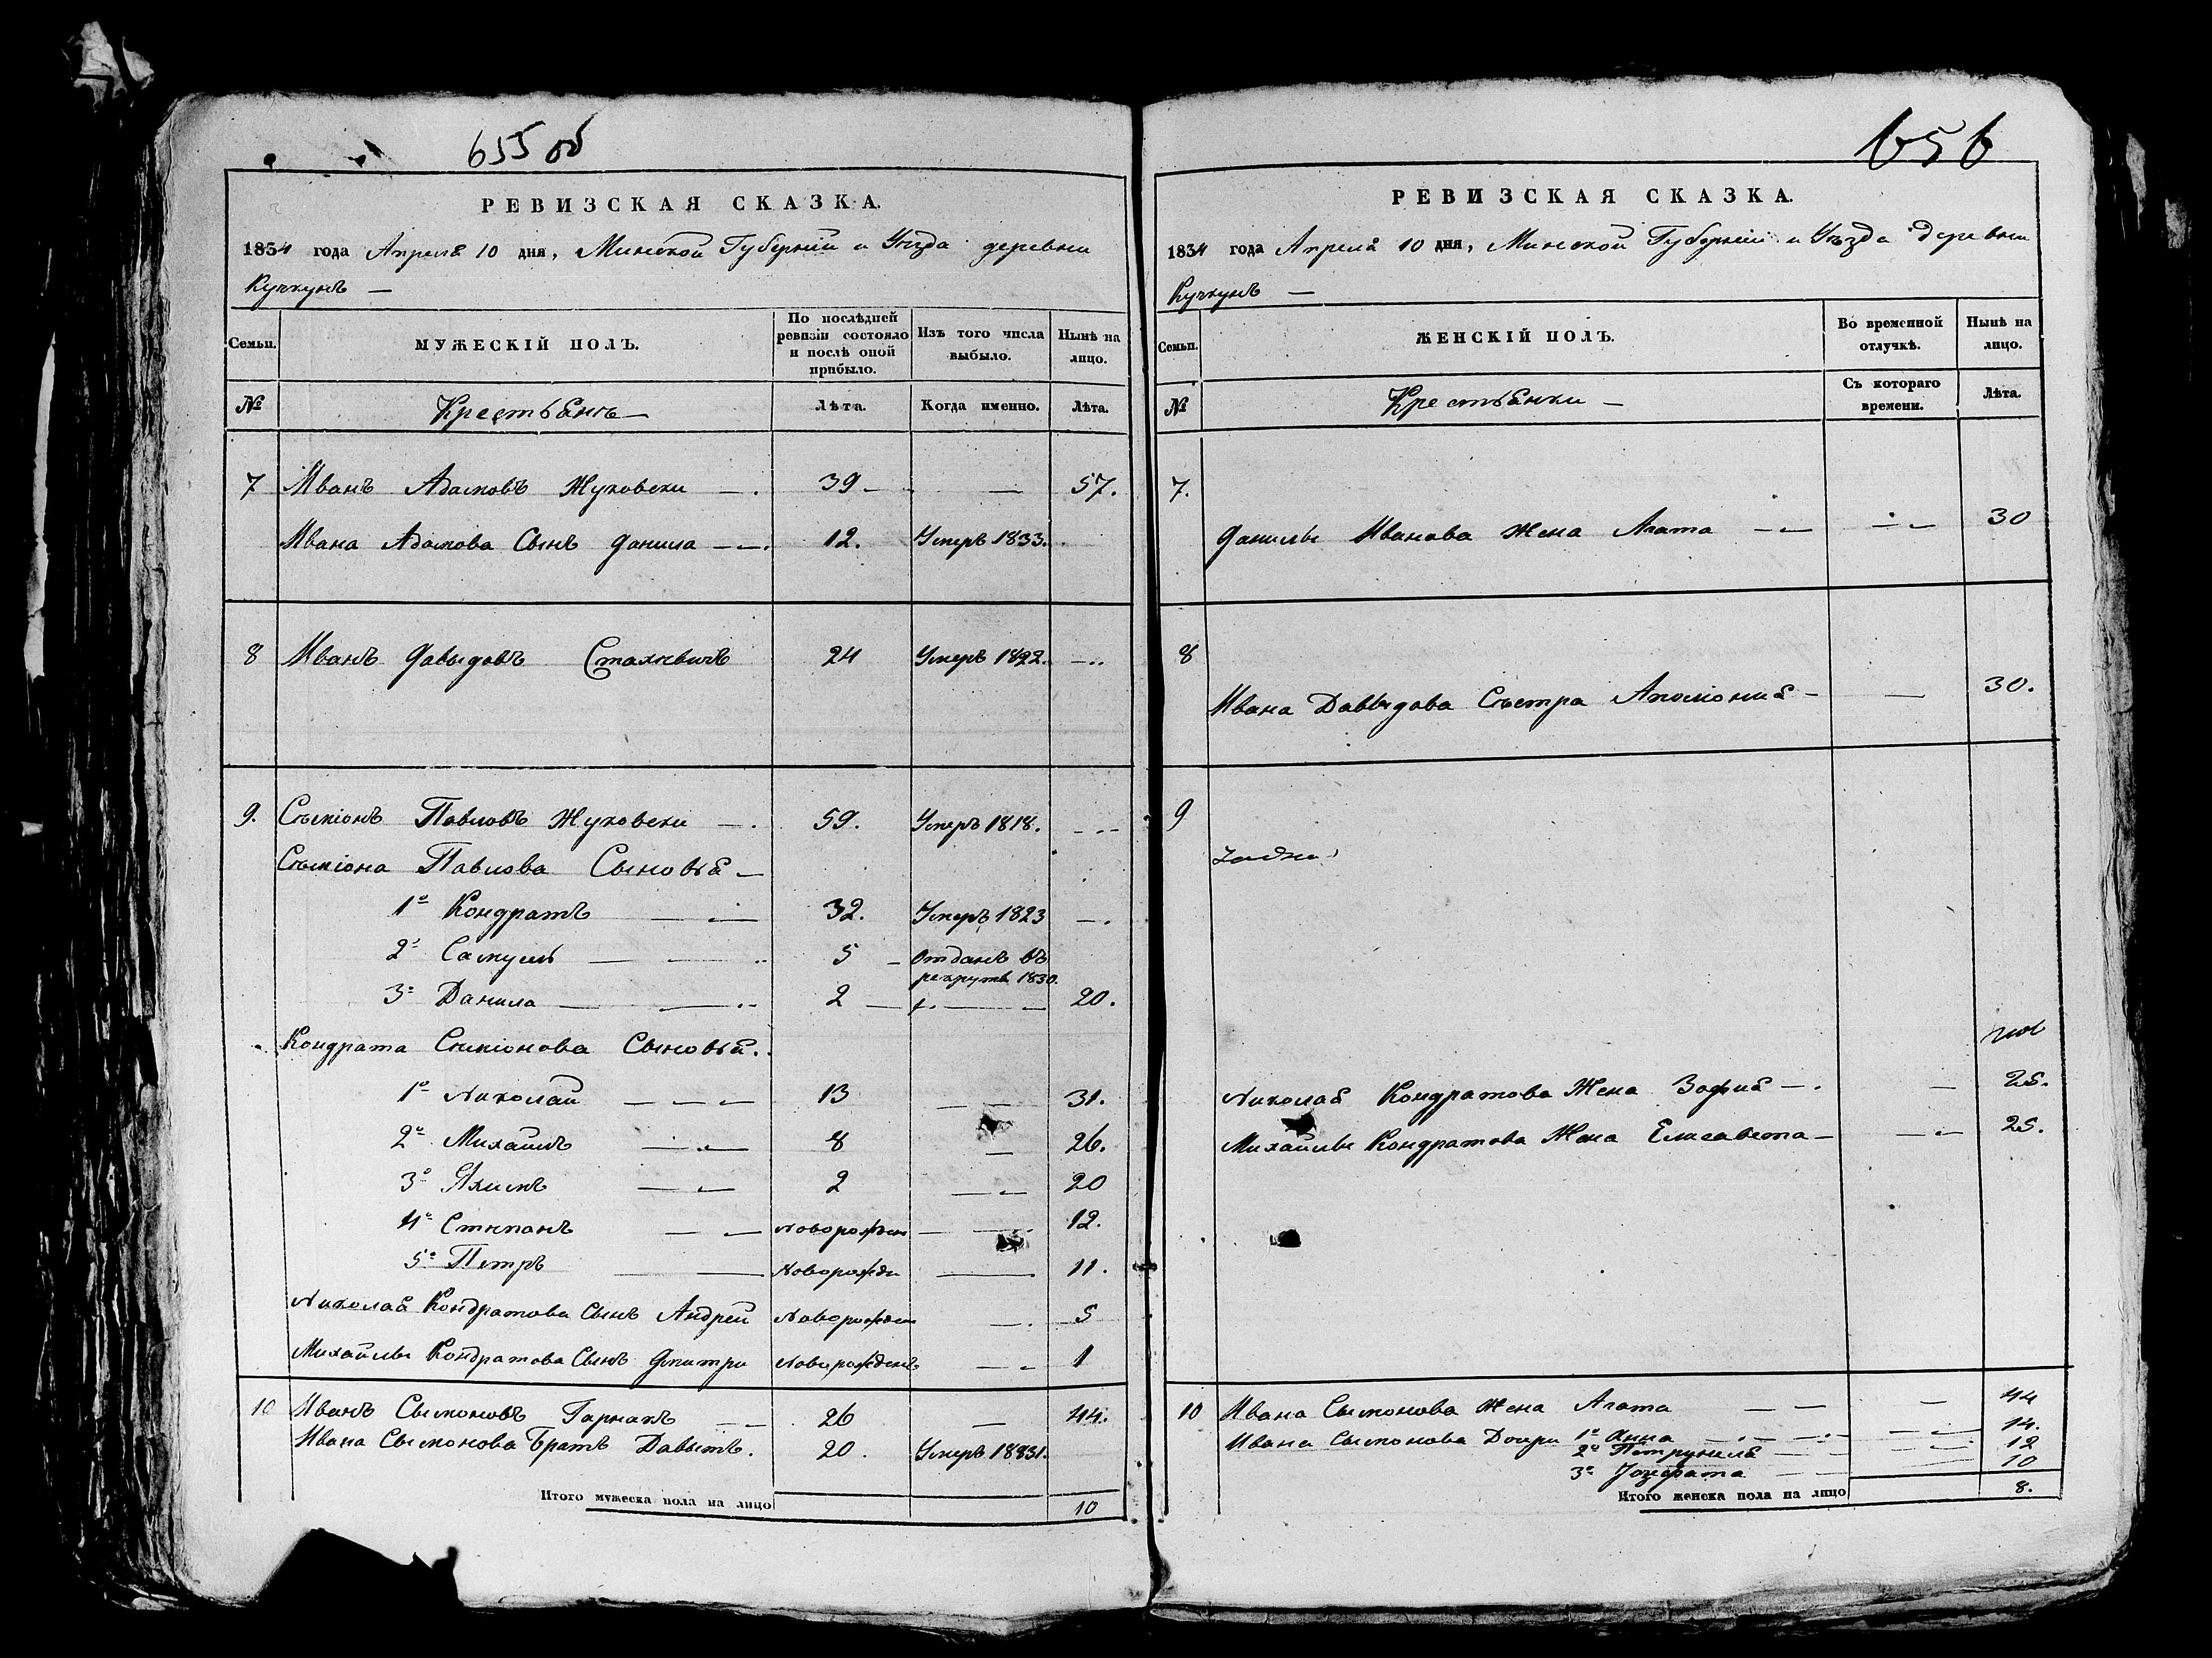 655 об
РЕВИЗСКАЯ СКАЗКА.
1834 года Апреля 10 дня, Минской Губернiи и Уѣзда деревни
Кучкунъ —
Семьи.
МУЖЕСКIЙ ПОЛЪ.
По послѣдней ревизiи состояло и послѣ оной прибыло.
Изъ того числа выбыло.
Нынѣ на лицо.
№ Крестьянъ — Лѣта. Когда именно. Лѣта.
7 Иванъ Адамовъ Жуковски — . 39 — — 57.
Ивана Адамова Сынъ Данила — — . 12. Умеръ 1833.
8 Иванъ Давыдовъ Стахевичъ 24 Умеръ 1822. — ..
9. Сымiонъ Павловъ Жуковски — . 59. Умеръ 1818. - --
Сымiона Павлова Сыновья —
1е Кондратъ — — 32. Умеръ 1823 — .
2е Самуль — — .. 5 — Отданъ въ
рекруты 1830.
3е Данила — — .. 2 — — 20.
Кондрата Симiонова Сыновья.
1е Николай — — — 13 — — 31.
2е Михайлъ — — 8 — 26.
3е Якимъ — — 2 — — 20
4е Степанъ — — Новорожден — — 12.
5е Петръ — — Новорожден — 11.
Николая Кондратова Сынъ Андрей Новорожден — . 5
Михайлы Кондратова Сынъ Дмитри Новорожденъ — - 1
10 Иванъ Сымоновъ Гарнакъ — — 26 — 44.
Ивана Сымонова Братъ Давытъ. 20. Умеръ 18831.
Итого мужеска пола на лицо 10
656
РЕВИЗСКАЯ СКАЗКА.
1834 года Апреля 10 дня, Минской Губернiи и Уѣзда Деревни
Кучкунъ —
Семьи.
ЖЕНСКIЙ ПОЛЪ.
Во временной отлучкѣ.
Нынѣ на лицо.
№ Крестьянки — Съ котораго времени. Лѣта.
7.
Данилы Иванова Жена Агата — — — — 30
8
Ивана Давыдова Сестра Аполонiя — — 30.
9
Николая Кондратова Жена Зофия — . — 25.
Михайлы Кондратова Жена Елисавета — — 25.
10 Ивана Сымонова Жена Агата — — — 44
Ивана Сымонова Дочри 1е Анна — — 14.
2е Петрунеля — — 12
3е Юзефата — — 10
Итого женска пола на лицо 8.